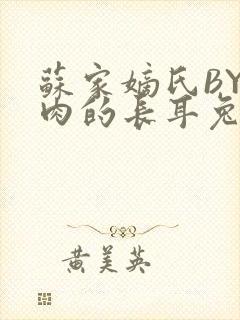 蘇家嫡氏BY
肉的長耳兔
黃美英